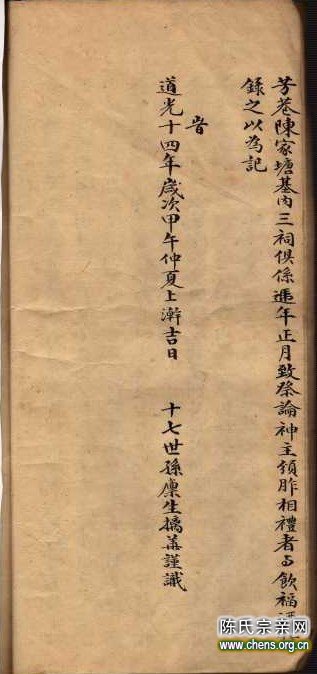 芳巷陳家塘基內三祠俱係遞年正月致祭論神主領胙相禮者与飲福
錄之以為記
旹
道光十四年歲次甲午仲夏上澣吉日
十七世孫廩生搢菶謹識
陈氏宗亲网
www.-chens.com.cn